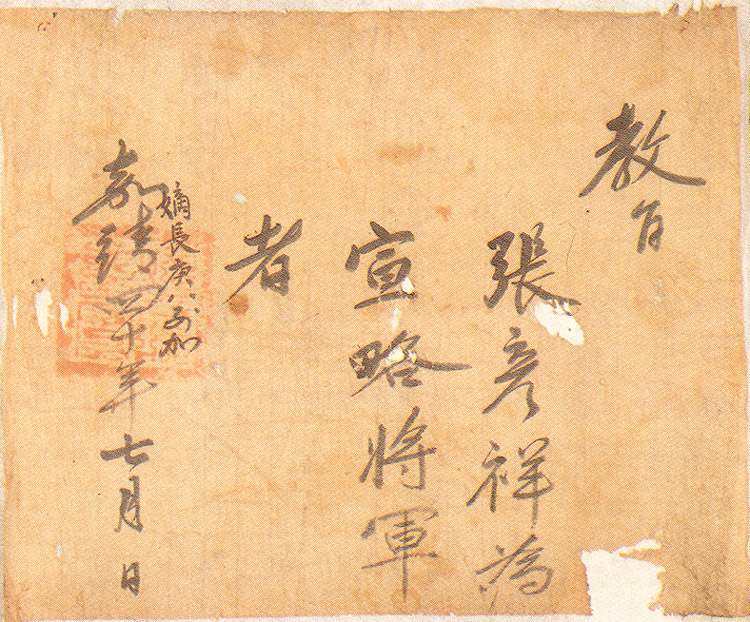 教旨
張彦祥爲
宣略將軍
者
嘉靖四十年七月 日
嫡長庚八別加